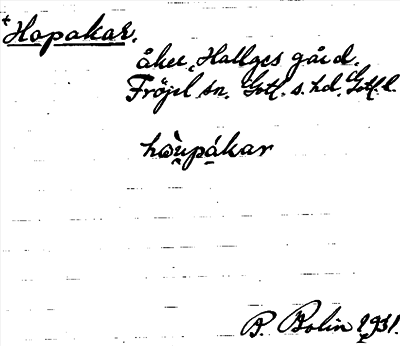 *Hopakar.
åker, Hallges gård.
Fröjel sn. Gotl. s. hd. Gotl. l.
hòu̯pákar
B. Bolin 1931.